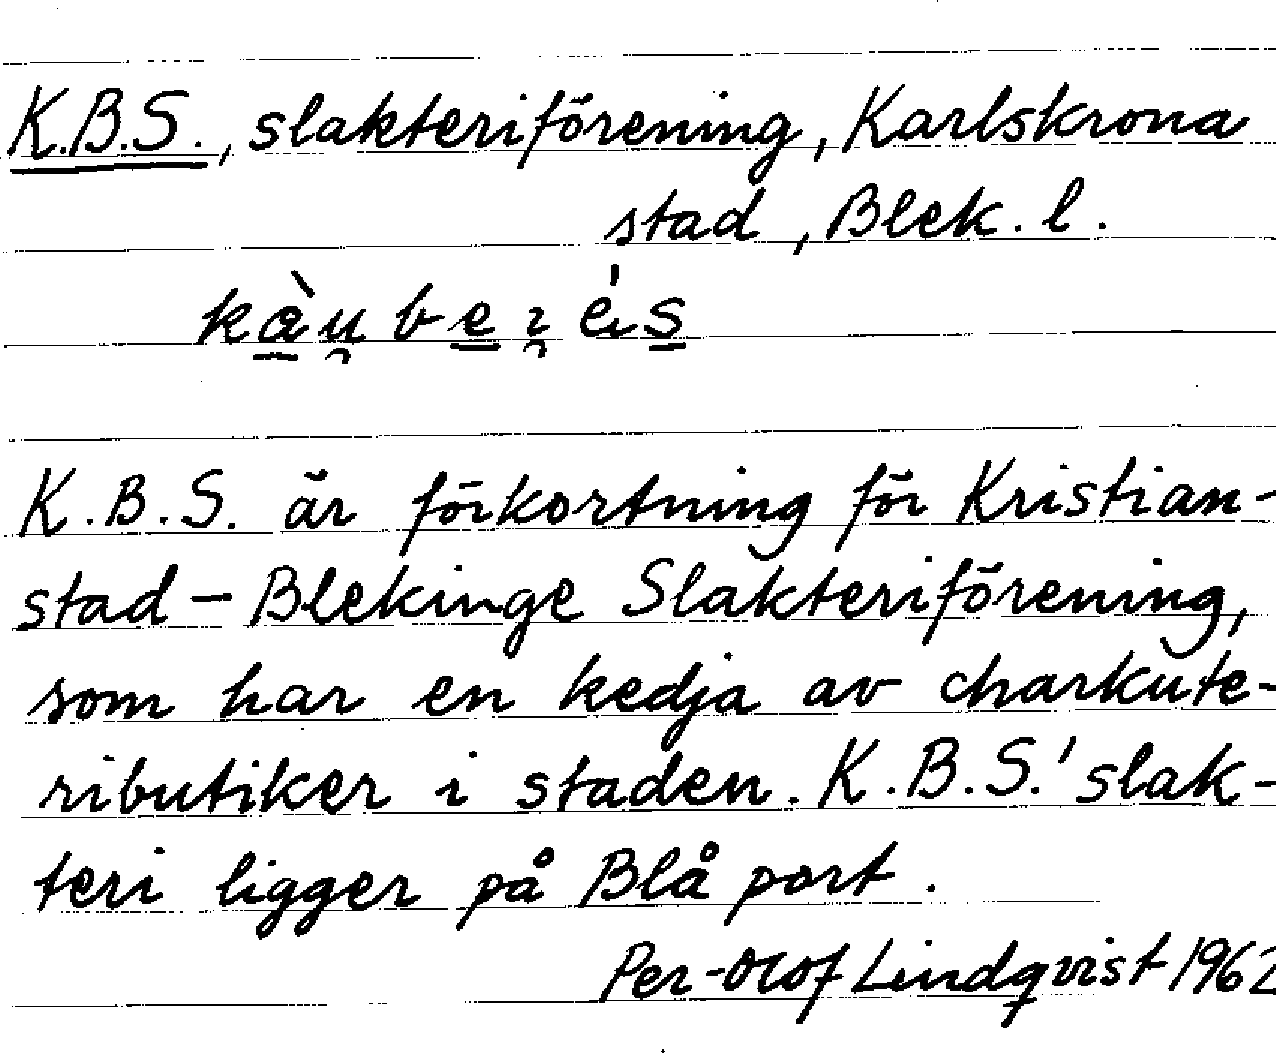 K.B.S., slakteriförening, Karlskrona
stad, Blek. l.
K.B.S. är förkortning för Kristian-
stad - Blekinge Slakteriförening,
som har en kedja av charkute-
ributiker i staden. K.B.S.' slak-
teri ligger på Blå port.
Per-Olof Lindqvist 1962